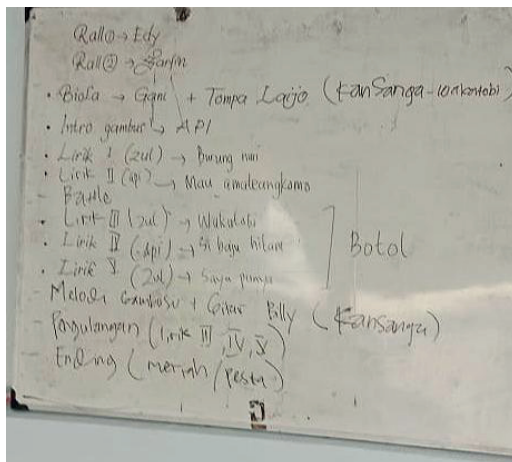 Rall① → Edy
Rall② → Sarfin
• Biola → Gani + Tompa Laijo (Kansanga - wakatobi)
• Intro gambus → API
• Lirik I (zul) → Burung nuri
• Lirik II (api) → Mau amaleangkomo
- Battle
• Lirik III (zul) → Wakatobi
• Lirik IV (Api) → Si baju hitam
• Lirik V (Zul) → Saya punya
Botol
- Melodi Gambusu + Gitar Billy (Kansanga)
- Pengulangan (lirik III, IV, V)
- Ending (meriah/pesta)